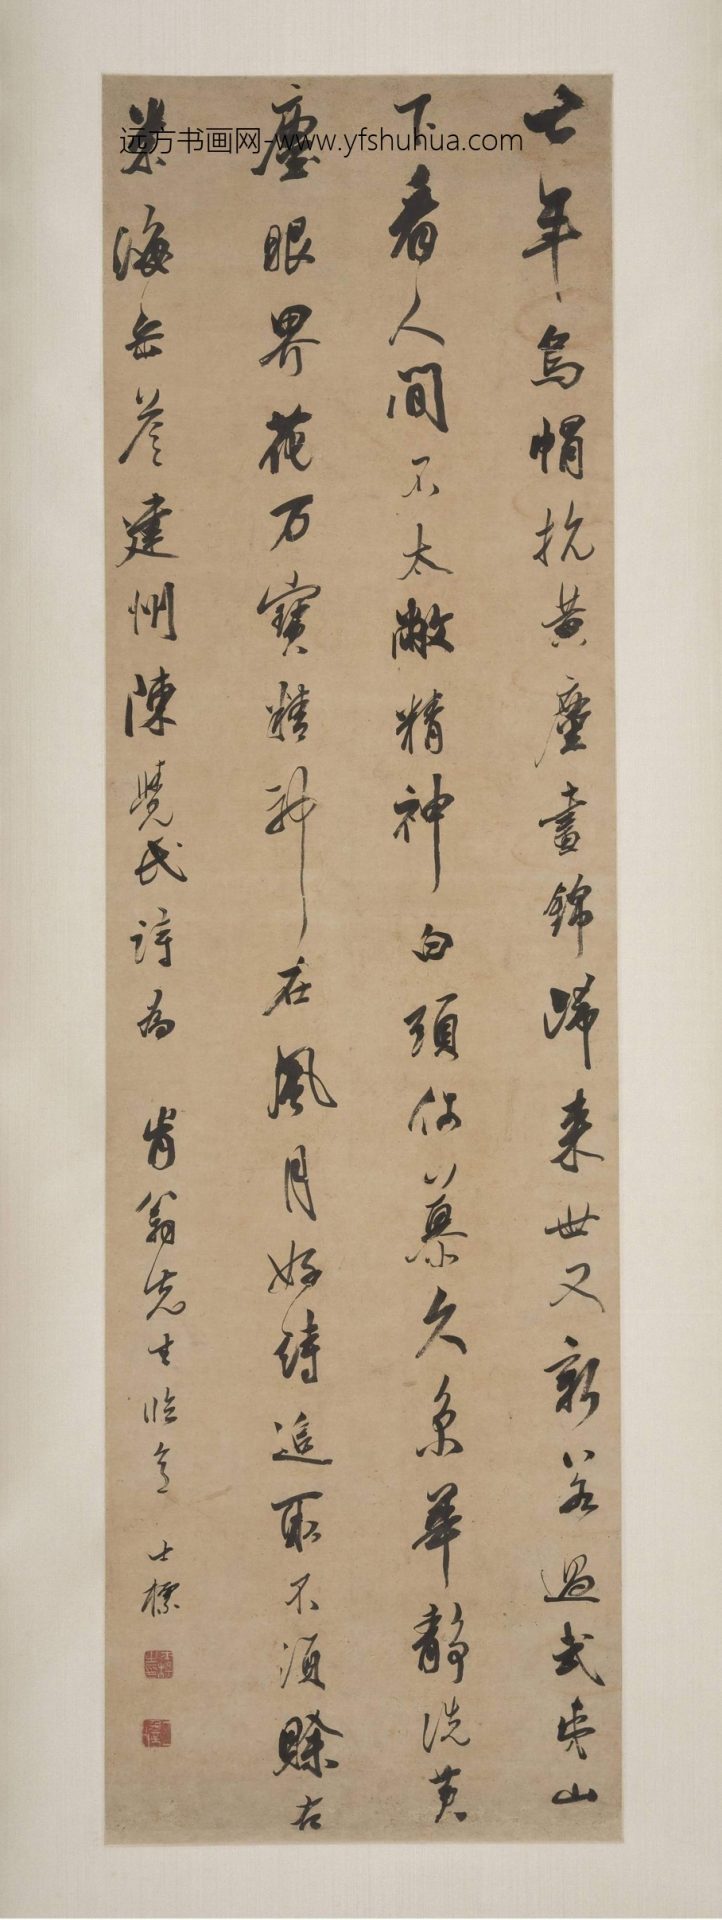 七年烏帽抗黃塵晝錦歸來世又新若過武夷山
下看人間不太敝精神白頭何慕久京華靜洗黃
塵眼界花万寶精神在風月好詩追取不須賒右
米海岳答建州陳覺民詩為 肯翁先生臨意 士標
远方书画网-www.yfshuhua.com